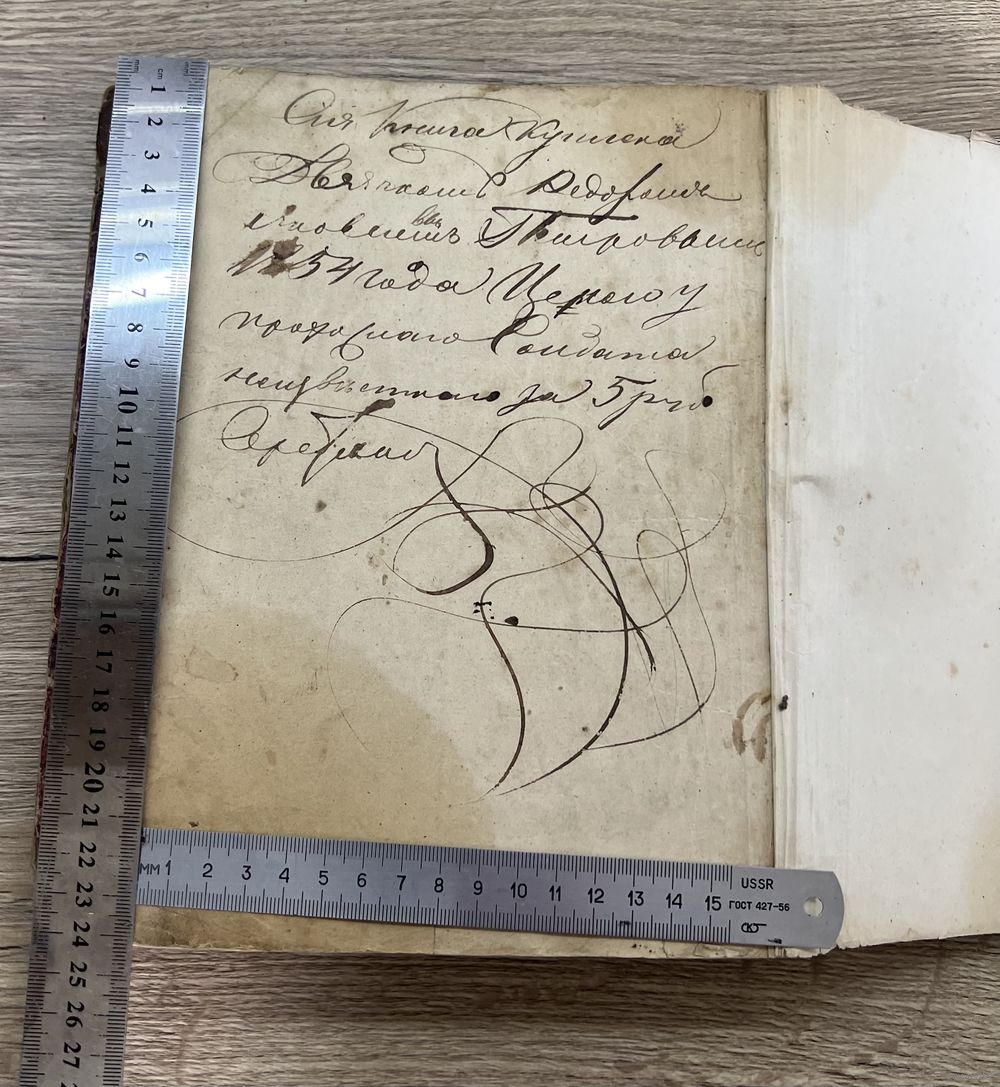 Сия Книга Куплена
Дьячкомъ Ѳедоромъ
вы
Петровымъ
1854 года Ценою у
прохожаго Солдата
неизвѣстнаго за 5 руб
Серебромъ
mm cm mm
1 2 3 4 5 6 7 8 9 10 11 12 13 14 15 16 17 18 19 20 21 22 23 24 25 26 27
MM 1 2 3 4 5 6 7 8 9 10 11 12 13 14 15
USSR
ГОСТ 427-56